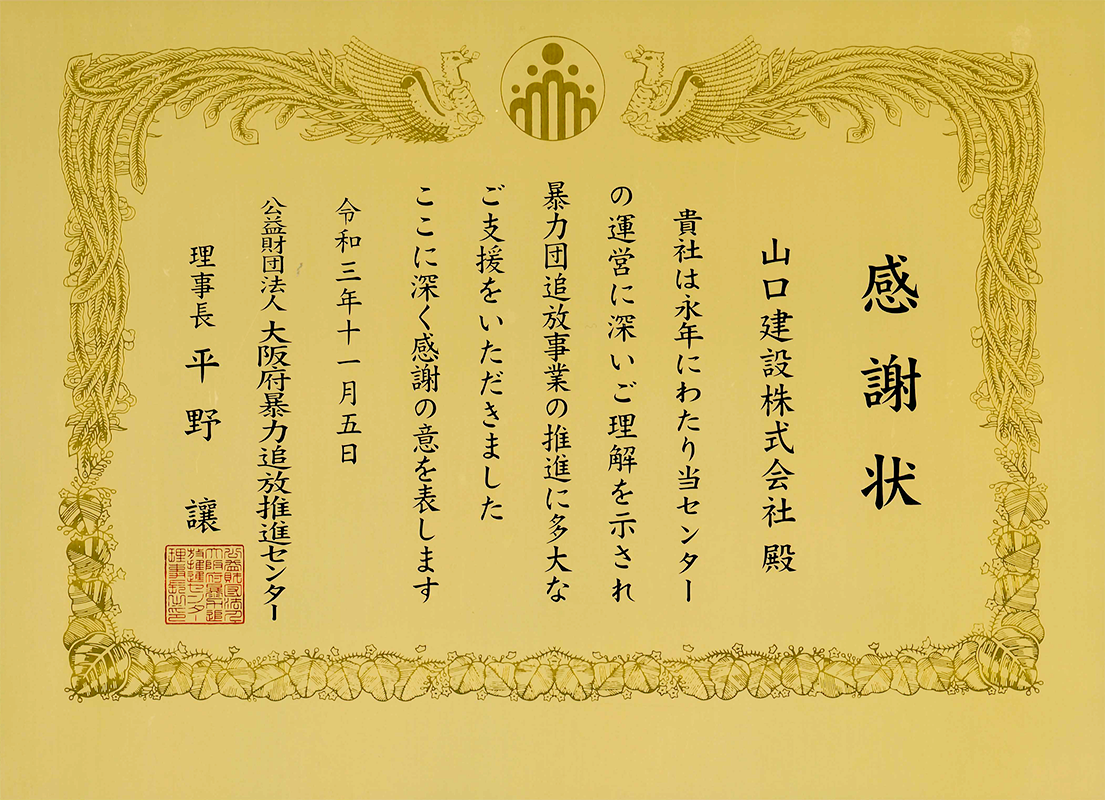 感謝状
山口建設株式会社 殿
貴社は永年にわたり当センター
の運営に深いご理解を示され
暴力団追放事業の推進に多大な
ご支援をいただきました
ここに深く感謝の意を表します
令和三年十一月五日
公益財団法人 大阪府暴力追放推進センター
理事長 平野 讓
公益財団法人
大阪府暴力追
放推進センター
理事長之印